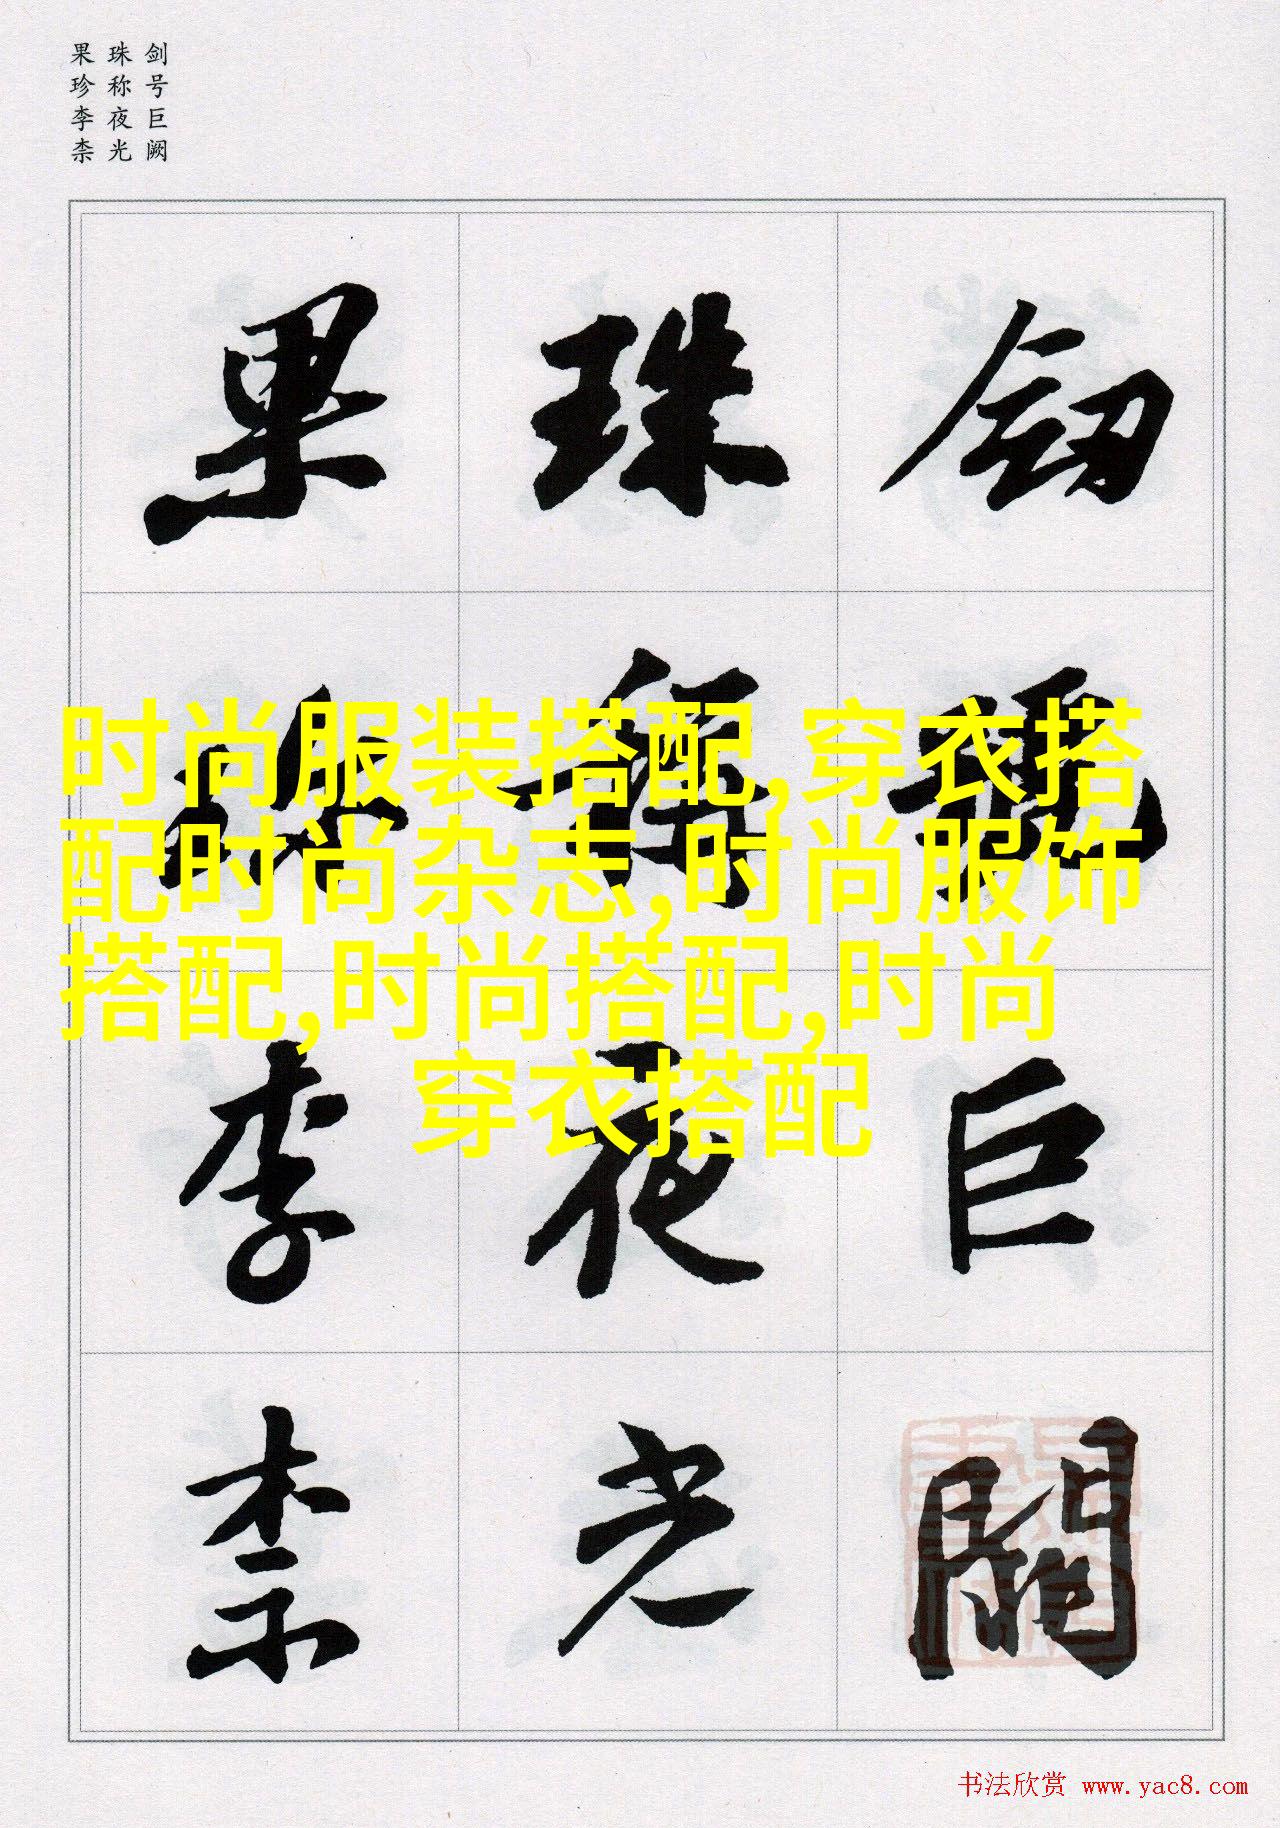 剑号巨阙
珠称夜光
果珍李柰
劒號巨闕
珠稱夜光
果珎李柰
时尚服装搭配,穿衣搭
配时尚杂志,时尚服饰
搭配,时尚搭配,时尚
穿衣搭配
书法欣赏 www.yac8.com